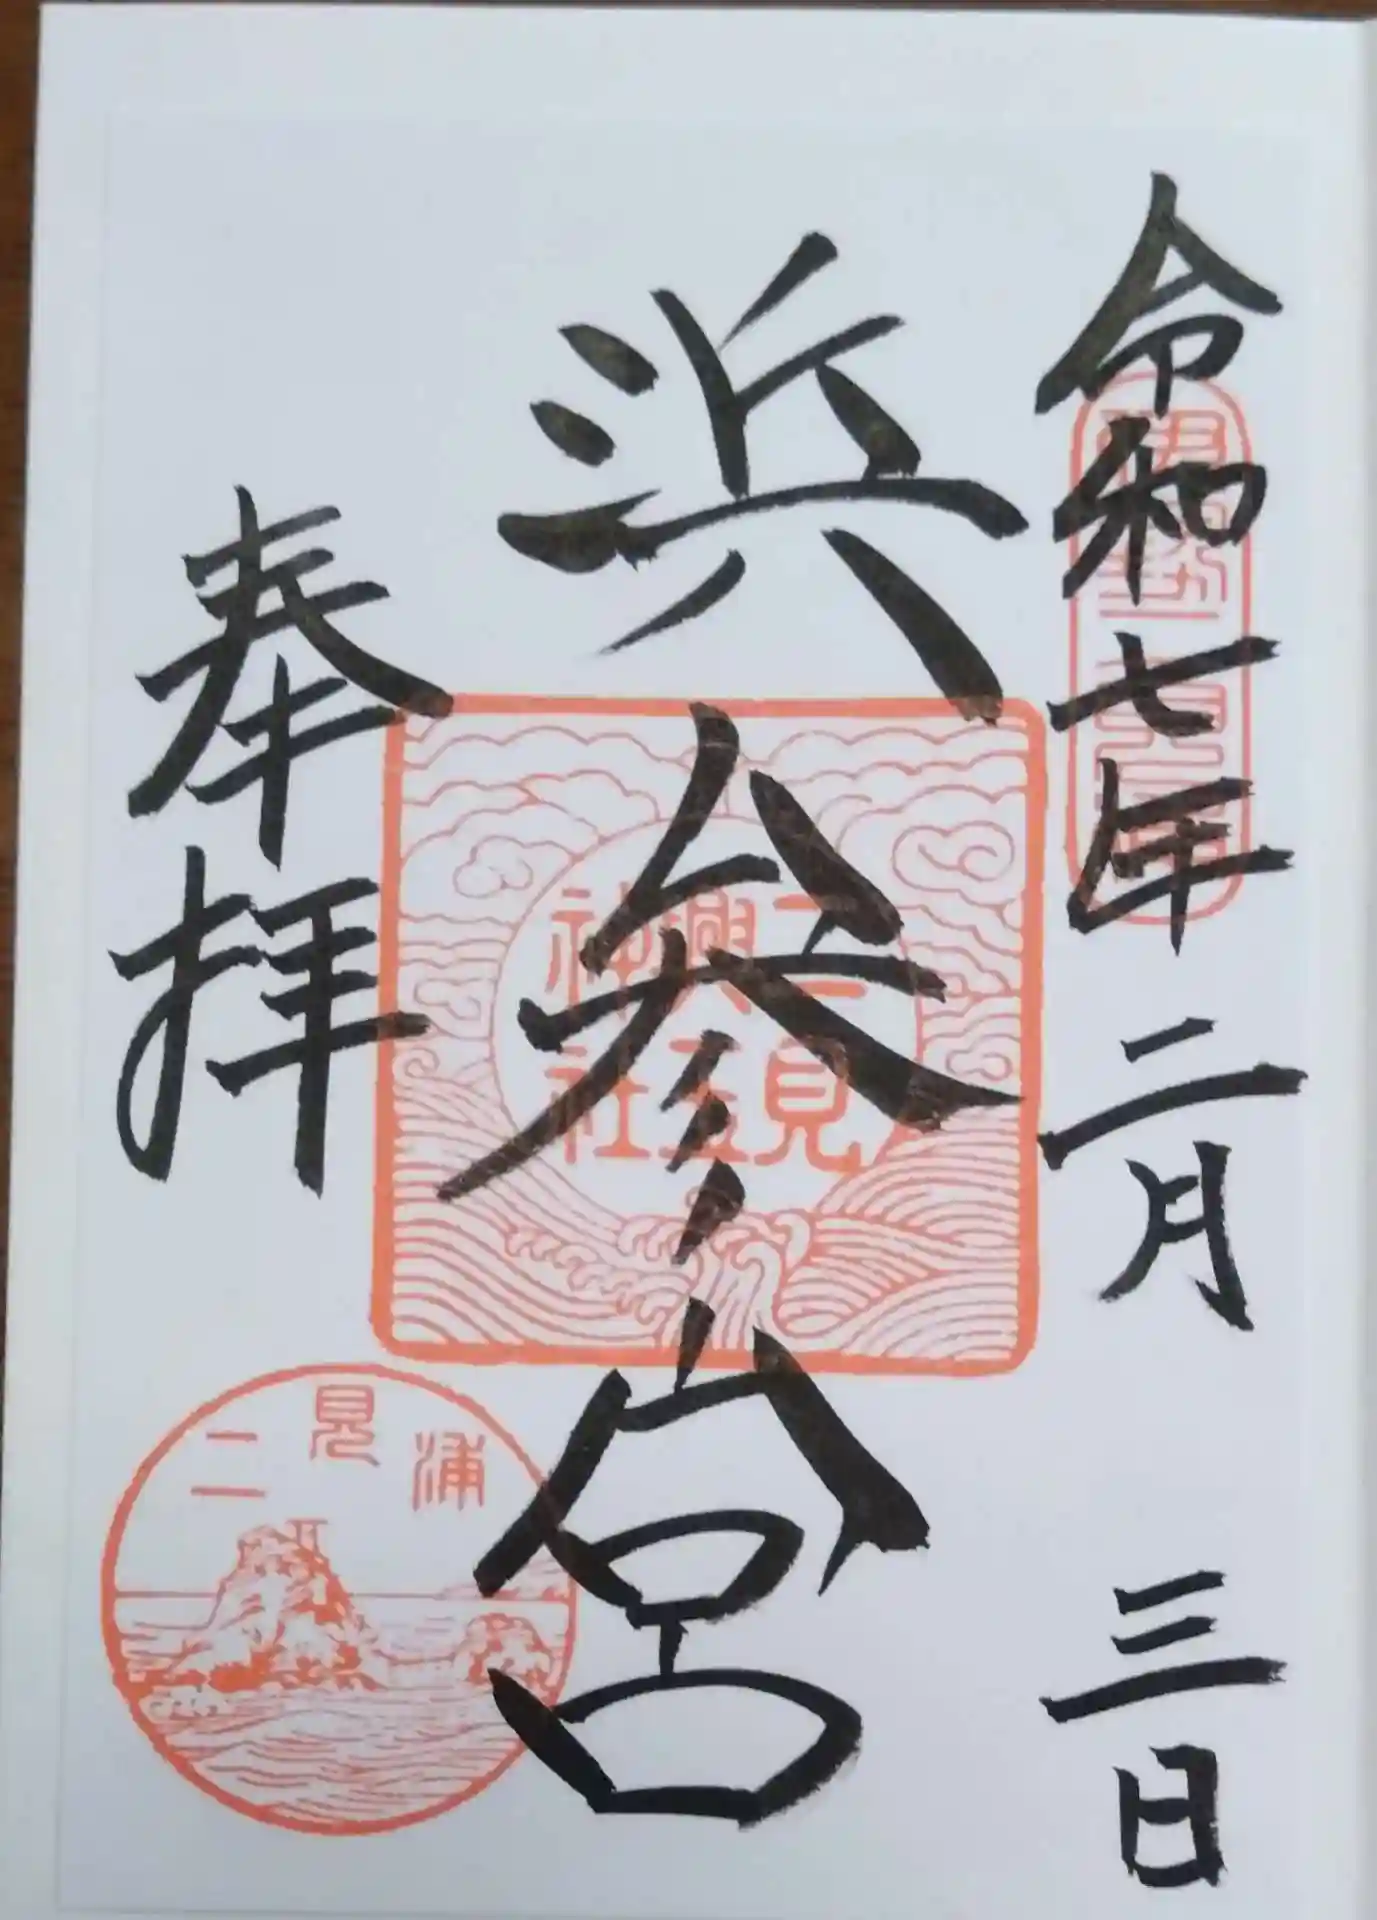 令和七年二月三日
浜参宮
奉拝
二見興玉神社
二見浦